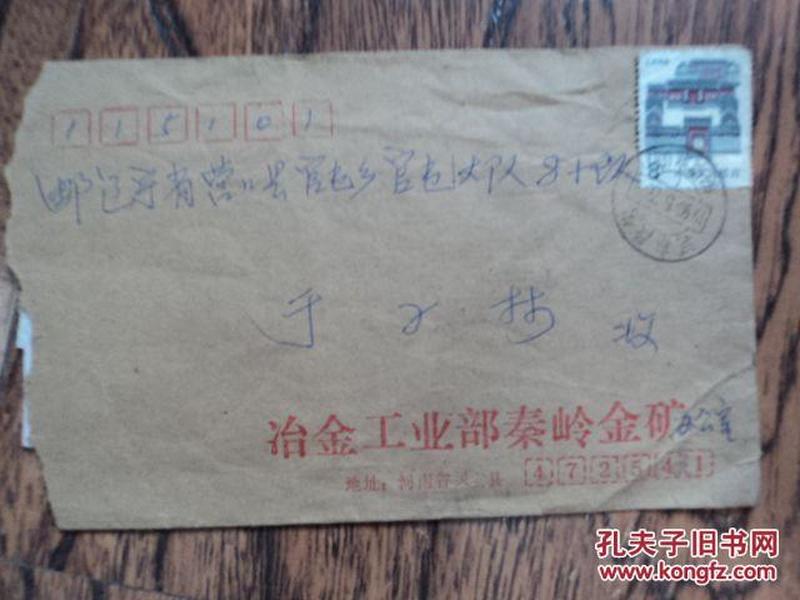 115101
辽宁省营口县官屯乡官屯大队8小队
于 收
冶金工业部秦岭金矿办公室
地址:河南省灵宝县 472541
孔夫子旧书网
www.kongfz.com